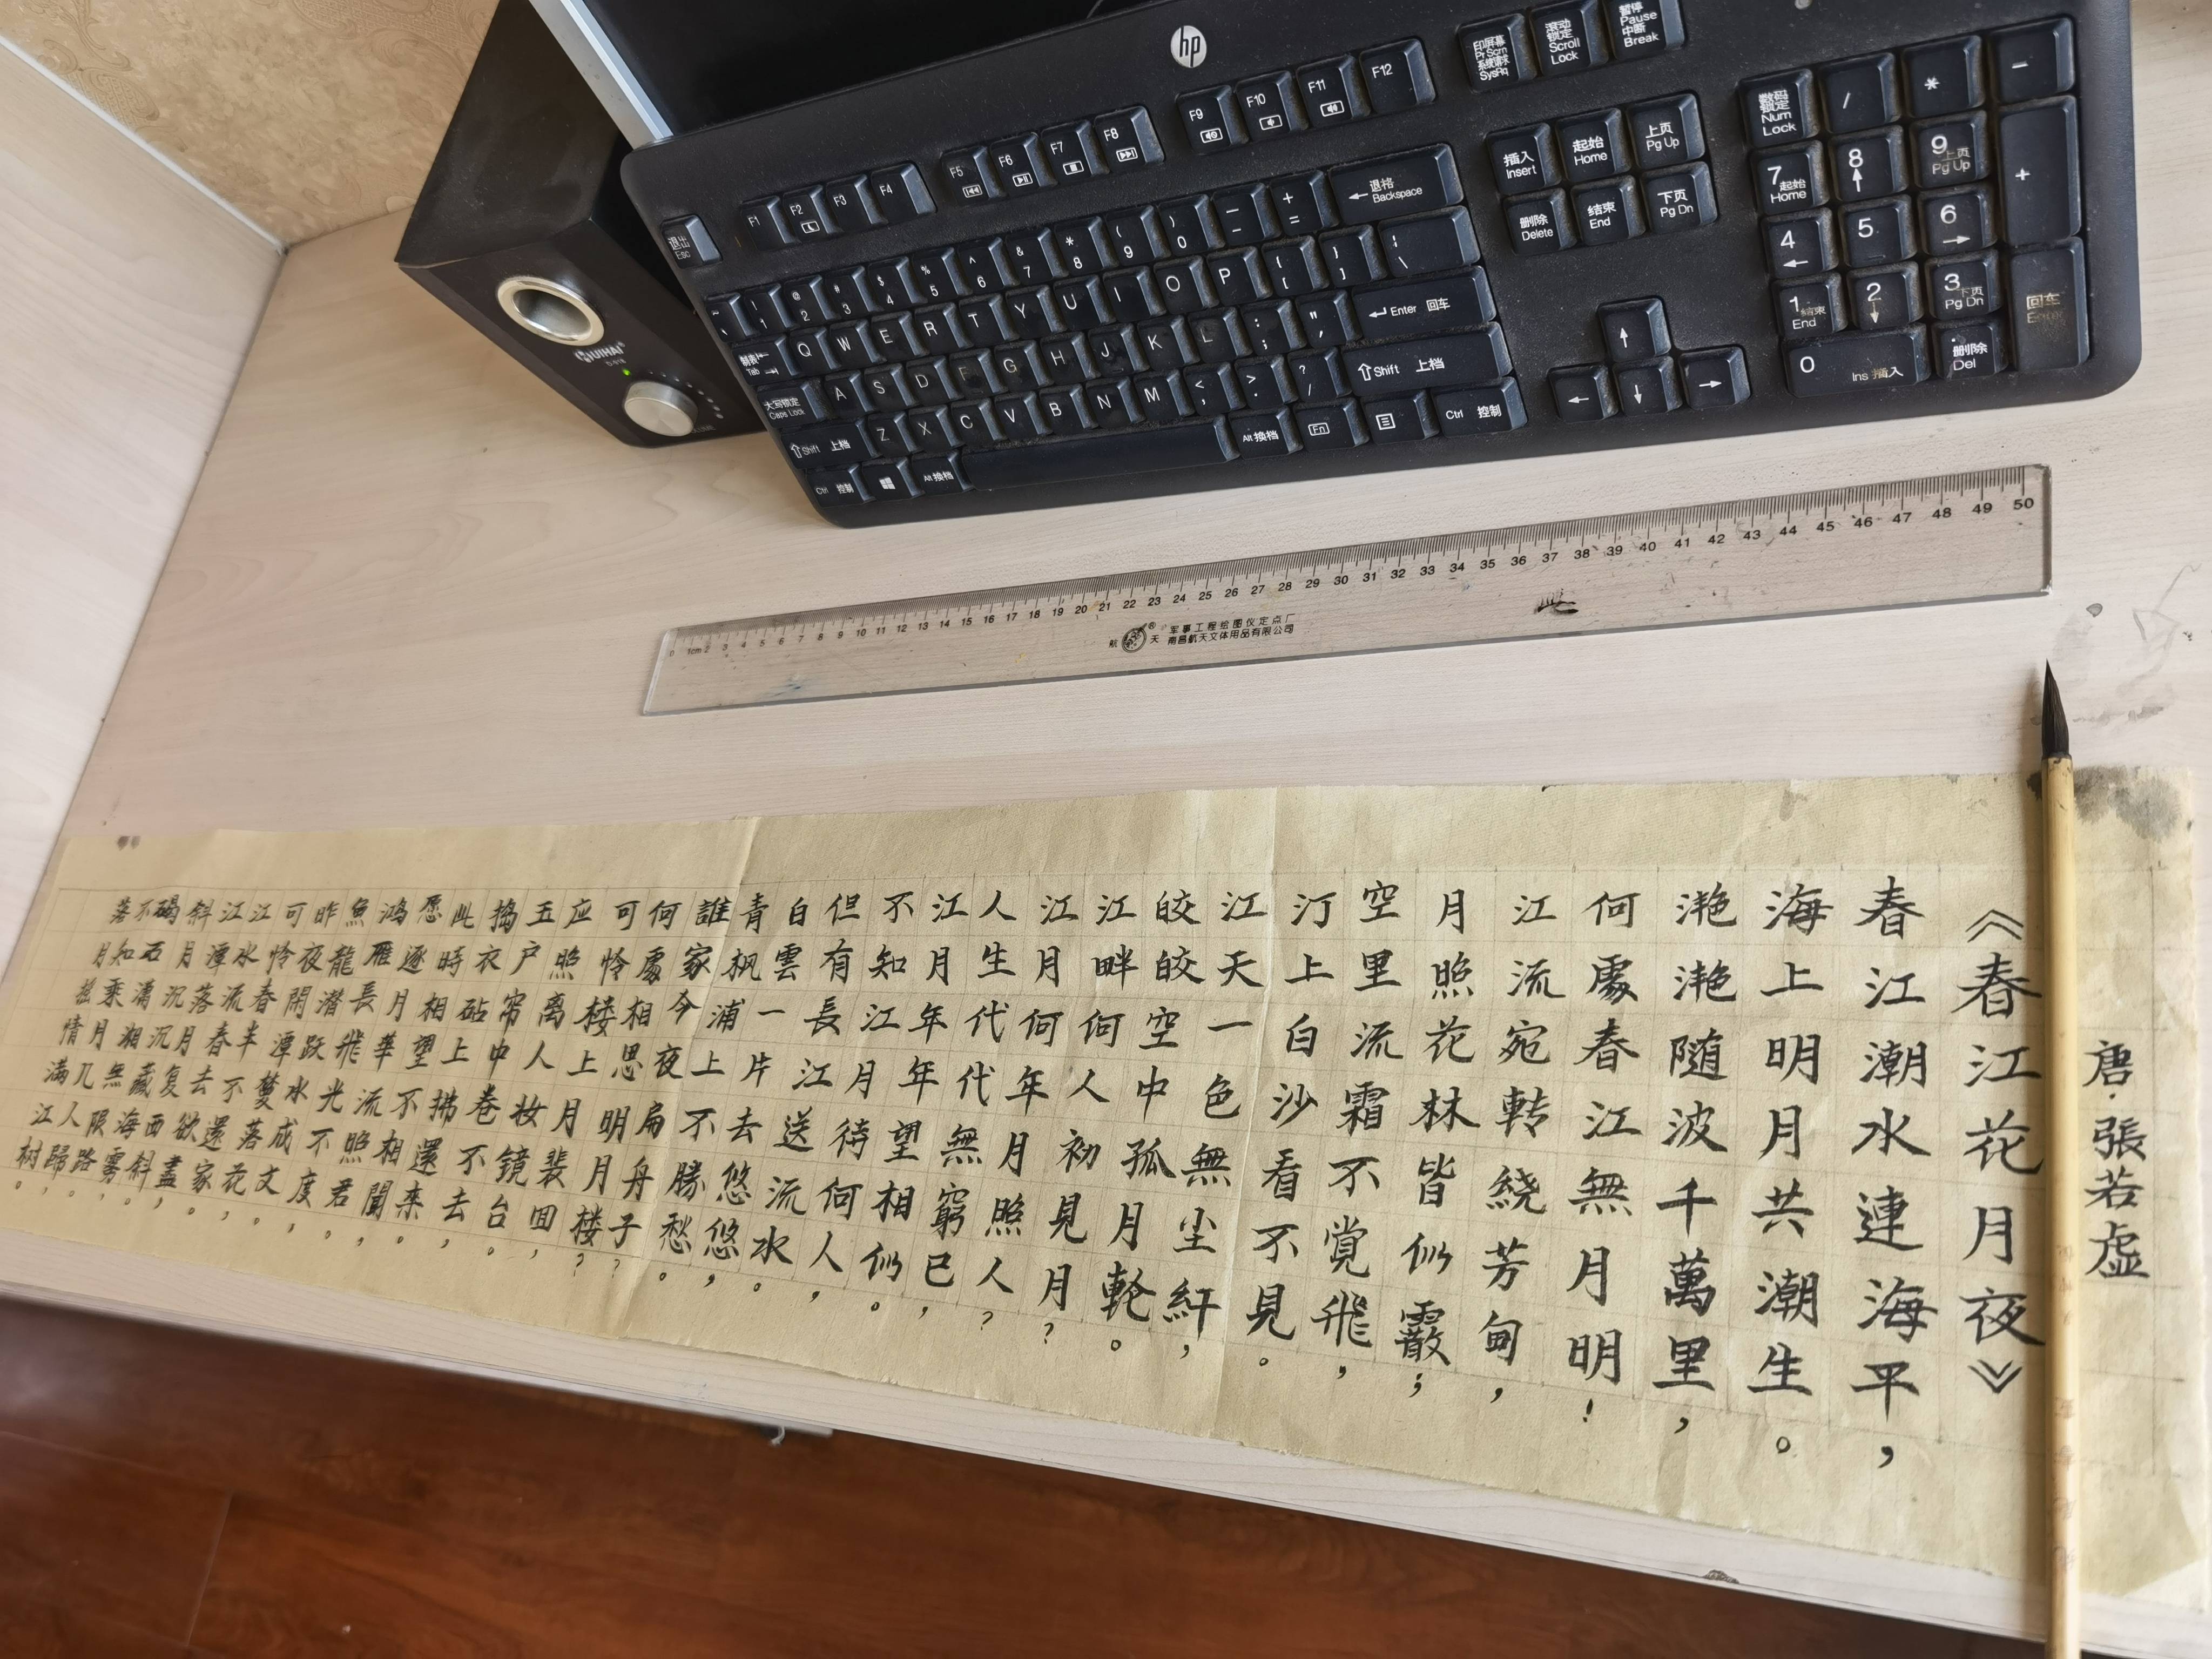 hp
退出 Esc
F1 F2 F3 F4 F5 F6 F7 F8 F9 F10 F11 F12
印屏幕 Pr Scrn 系统请求 SysRq
滚动锁定 Scroll Lock
暂停 Pause 中断 Break
~ ` ! 1 @ 2 # 3 $ 4 % 5 ^ 6 & 7 * 8 ( 9 ) 0 — - + = ← 退格 Backspace
插入 Insert 起始 Home 上页 Pg Up
数码锁定 Num Lock / * − +
制表 Tab Q W E R T Y U I O P { [ } ] | \
删除 Delete 结束 End 下页 Pg Dn
7 起始 Home 8 9 上页 Pg Up
大写锁定 Caps Lock A S D F G H J K L : ; " ' Enter 回车
4 5 6
⇧Shift 上档 Z X C V B N M < , > . ? / ⇧Shift 上档
1 结束 End 2 3 下页 Pg Dn 回车 Enter
Ctrl 控制 Alt 换档 Alt 换档 Fn Ctrl 控制
0 Ins 插入 . 删除 Del
HUIHAI
0 1cm 2 3 4 5 6 7 8 9 10 11 12 13 14 15 16 17 18 19 20 21 22 23 24 25 26 27 28 29 30 31 32 33 34 35 36 37 38 39 40 41 42 43 44 45 46 47 48 49 50
航天 ® 军事工程绘图仪定点厂
南昌航天文体用品有限公司
唐·張若虛
《春江花月夜》
春江潮水連海平，
海上明月共潮生。
滟滟随波千萬里，
何處春江無月明！
江流宛転繞芳甸，
月照花林皆似霰；
空里流霜不覺飛，
汀上白沙看不見。
江天一色無尘纤，
皎皎空中孤月輪。
江畔何人初見月？
江月何年月照人？
人生代代無窮已，
江月年年望相似。
不知江月待何人，
但有長江送流水。
白雲一片去悠悠，
青枫浦上不勝愁。
誰家今夜扁舟子？
何處相思明月楼？
可怜楼上月裴回，
应照离人妆镜台。
玉户帘中卷不去，
搗衣砧上拂還来。
此時相望不相聞，
愿逐月華流照君。
鸿雁長飛光不度，
魚龍潜跃水成文。
昨夜閑潭夢落花，
可怜春半不還家。
江水流春去欲盡，
江潭落月复西斜。
斜月沉沉藏海雾，
碣石瀟湘無限路。
不知乘月几人歸，
落月摇情满江树。